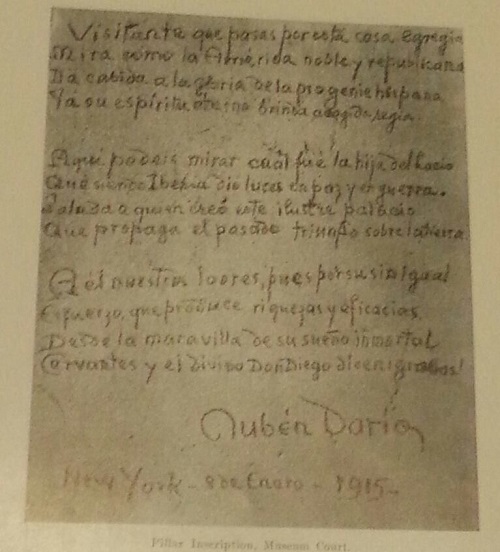 Visitante que pasas por esta casa egregia
Mira cómo la América noble y republicana
Da cabida a la gloria de la progenie hispana
Y a su espíritu eterno brinda acogida regia.
Aquí podeis mirar cuál fué la hija del Lacio
Que siendo Iberia dio luces en paz y en guerra.
Saludad a quien creó este ilustre palacio
Que propaga el pasado triunfo sobre la tierra.
A él nuestros loores, pues por su sin igual
Esfuerzo, que produce riquezas y eficacias,
Desde la maravilla de su sueño inmortal
Cervantes y el divino Don Diego dicen ¡gracias!
Rubén Darío
New York - 8 de Enero - 1915 -
Pillar Inscription, Museum Court.